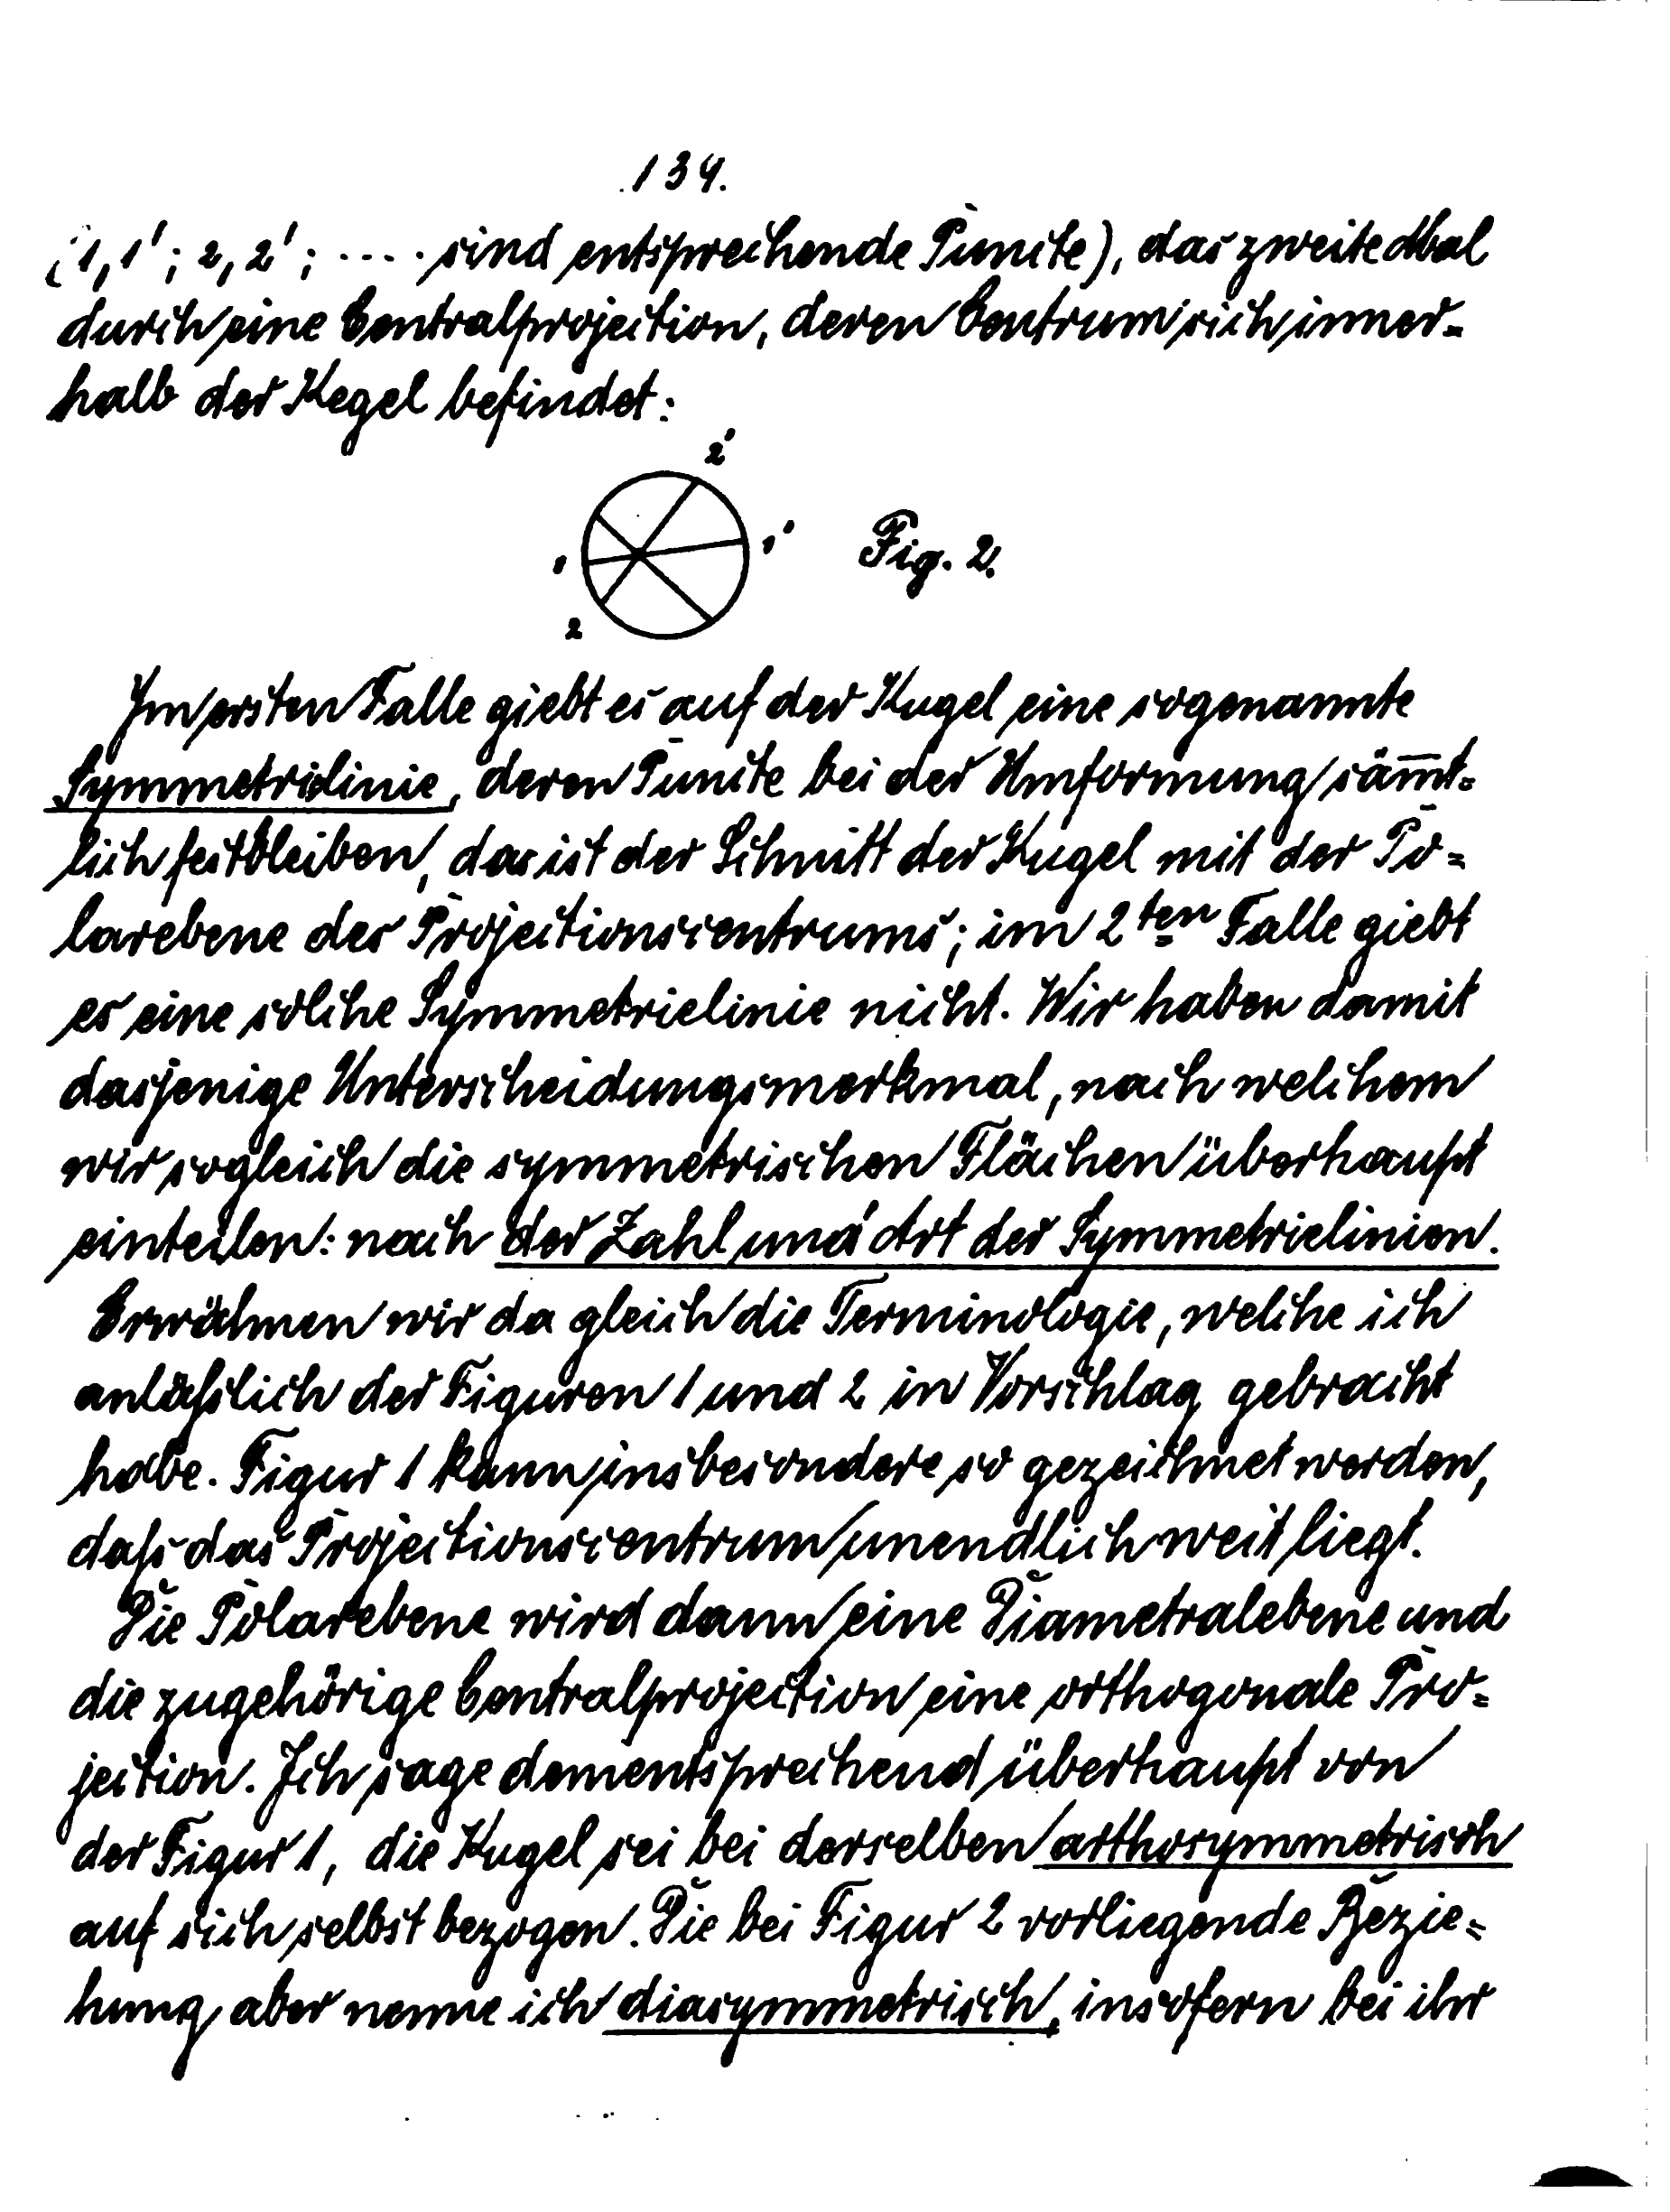 134.
(1,1'; 2,2'; .... sind entsprechende Puncte), das zweite Mal
durch eine Centralprojection, deren Centrum sich inner-
halb der Kegel befindet:
2'
1 1' Fig. 2.
2
Im ersten Falle giebt es auf der Kugel eine sogenannte
Symmetrielinie, deren Puncte bei der Umformung säm̅t-
lich festbleiben, das ist der Schnitt der Kugel mit der Po-
larebene des Projectionscentrums; im 2ten Falle giebt
es eine solche Symmetrielinie nicht. Wir haben damit
dasjenige Unterscheidungsmerkmal, nach welchem
wir sogleich die symmetrischen Flächen überhaupt
einteilen: nach der Zahl und Art der Symmetrielinien.
Erwähnen wir da gleich die Terminologie, welche ich
anläßlich der Figuren 1 und 2 in Vorschlag gebracht
habe. Figur 1 kann insbesondere so gezeichnet werden,
daß das Projectionscentrum unendlich weit liegt.
Die Polarebene wird dann eine Diametralebene und
die zugehörige Centralprojection eine orthogonale Pro-
jection. Ich sage dementsprechend überhaupt von
der Figur 1, die Kugel sei bei derselben orthosymmetrisch
auf sich selbst bezogen. Die bei Figur 2 vorliegende Bezie-
hung aber nenne ich diasymmetrisch, insofern bei ihr